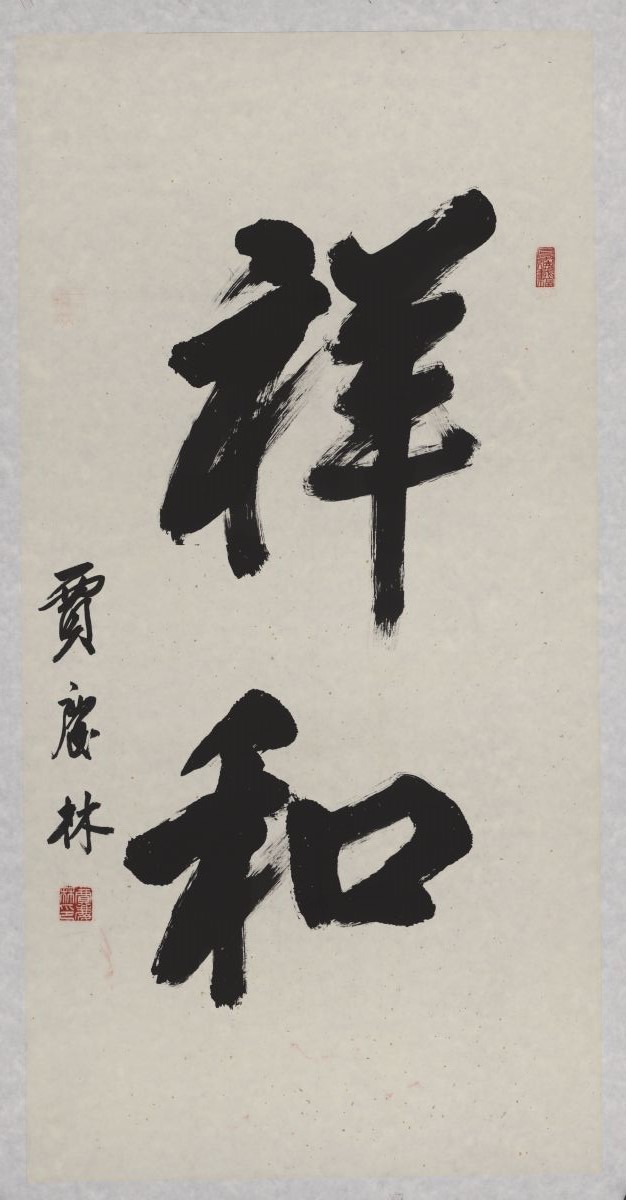 祥和
賈慶林